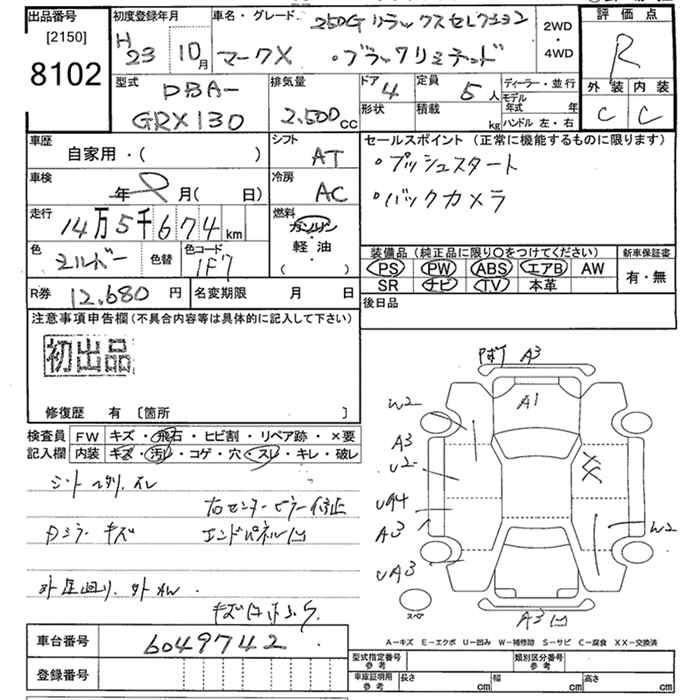 出品番号
[2150]
8102
初度登録年月
H23 10月
車名・グレード
250G リラックスセレクション
マークX ・ブラックリミテッド
2WD
・
4WD
評価点
R
外装 内装
C C
型式
DBA-
GRX130
排気量
2,500cc
ドア 4
定員 5人
ディーラー・並行
形状
積載 kg
モデル年式 年
ハンドル 左・右
車歴
自家用・( )
シフト
AT
セールスポイント (正常に機能するものに限ります)
・プッシュスタート
・バックカメラ
車検
年 月( 日)
冷房
AC
走行
14万5千674km
燃料
ガソリン
軽・油
( )
色
シルバー
色替
色コード
1F7
装備品 (純正品に限り○をつけてください)
新車保証書
PS PW ABS エアB AW
SR ナビ TV 本革
有・無
R券 12,680円
名変期限 月 日
後日品
注意事項申告欄(不具合内容等は具体的に記入して下さい)
初出品
修復歴 有 [箇所 ]
検査員記入欄
FW キズ・飛石・ヒビ割・リペア跡・×要
内装 キズ・汚レ・コゲ・穴・スレ・キレ・破レ
右センターピラー修正
Dミラーキズ エンドパネル凹
A3
W2
A1
A3
U2
A3
UA3
W2
A3凹
スペア
A-キズ E-エクボ U-凹み W-補修跡 S-サビ C-腐食 XX-交換済
車台番号 6049742
登録番号
型式指定番号
参考
類別区分番号
参考
車庫証明用
参考
長さ cm 幅 cm 高さ cm